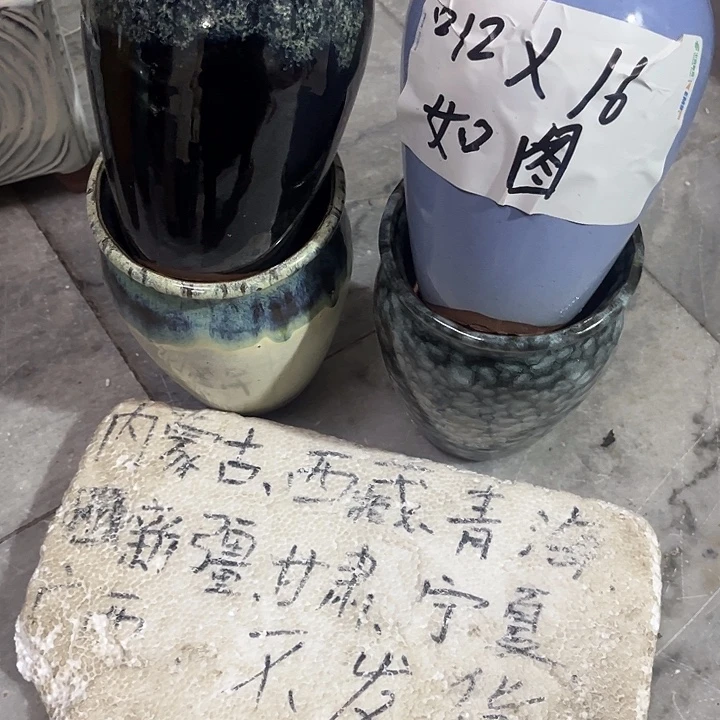 12X16
如图
内蒙古、西藏、青海
新疆、甘肃、宁夏
广西
不发货